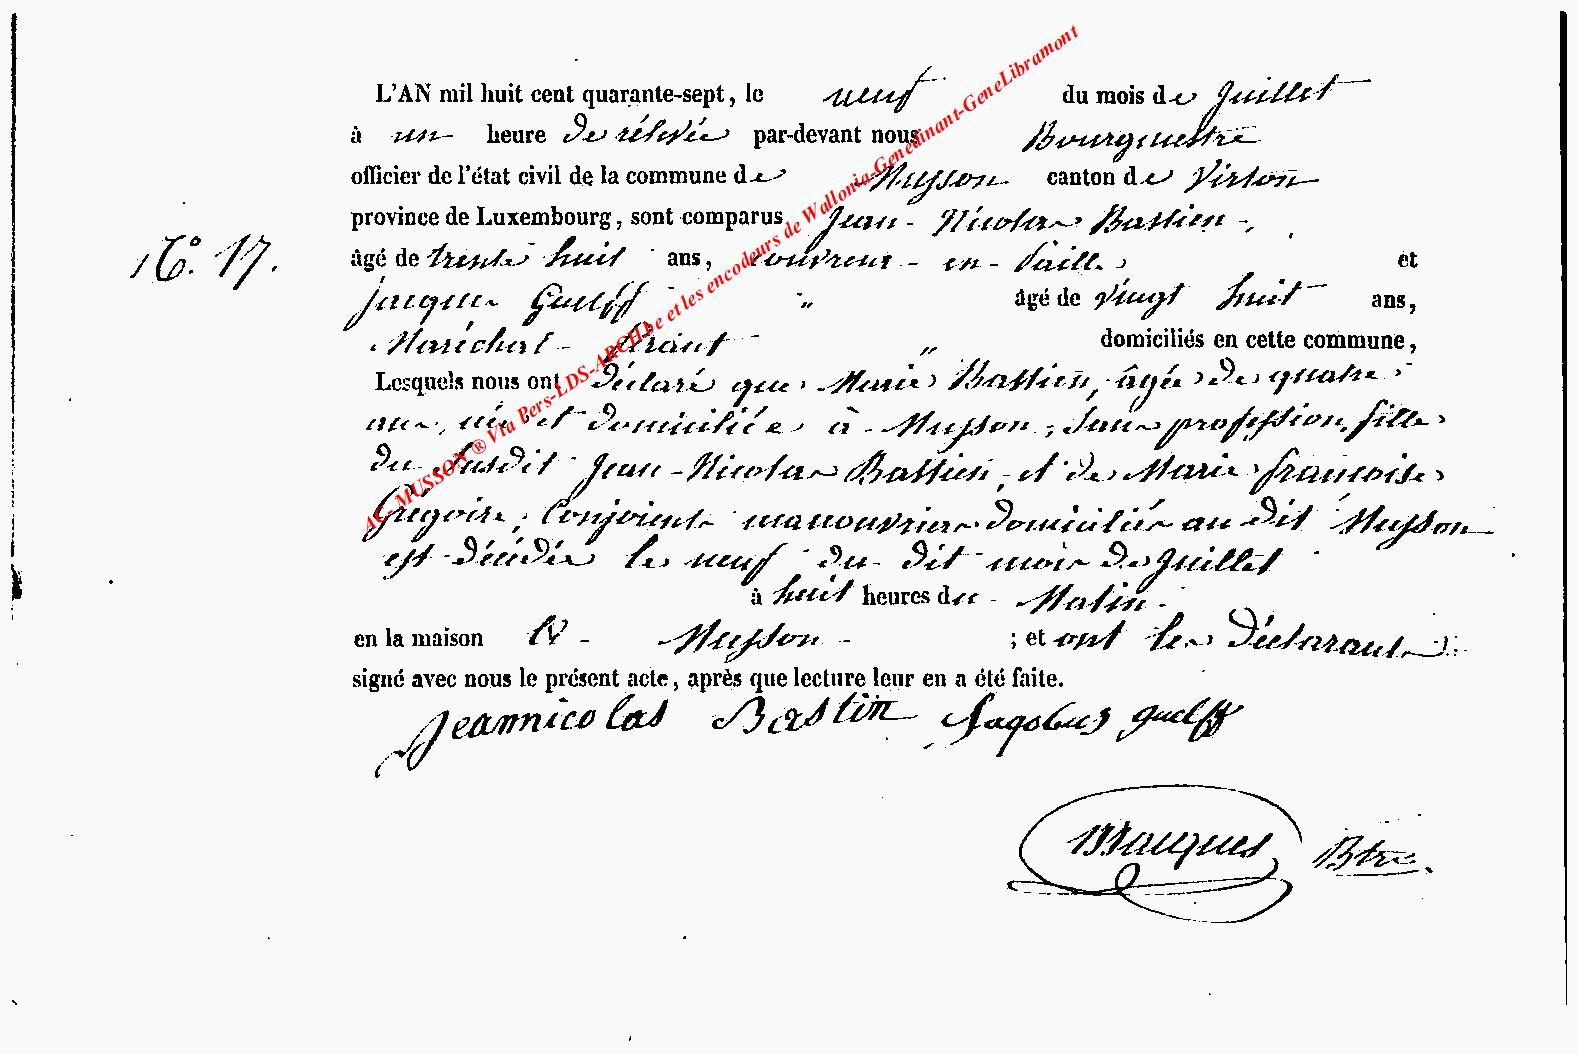 L'AN mil huit cent quarante-sept, le neuf du mois de Juillet
à un heure de rélevée par-devant nous Bourguestre
officier de l'état civil de la commune de Musson canton de Virton
province de Luxembourg, sont comparus Jean-Nicolas Bastien
N° 17. âgé de trente huit ans, Couvreur-en-Paille et
Jacques Guelff " âgé de vingt huit ans,
Maréchal-férant " domiciliés en cette commune,
Lesquels nous ont déclaré que Marie Bastien, âgée de quatre
ans, née et domiciliée à Musson; sans profession, fille
du susdit Jean-Nicolas Bastien, et de Marie françoise
Grégoire, Conjoints manouvriers domiciliés au dit Musson
est décédée le neuf du dit mois de Juillet
à huit heures du Matin
en la maison à Musson ; et ont les déclarants
signé avec nous le présent acte, après que lecture leur en a été faite.
Jeannicolas Bastin Jagobus guelff
Mauques Btre.
AC-MUSSON ® Via Pers-LDS-ARCH.be et les encodeurs de Wallonia-Genedinant-GeneLibramont